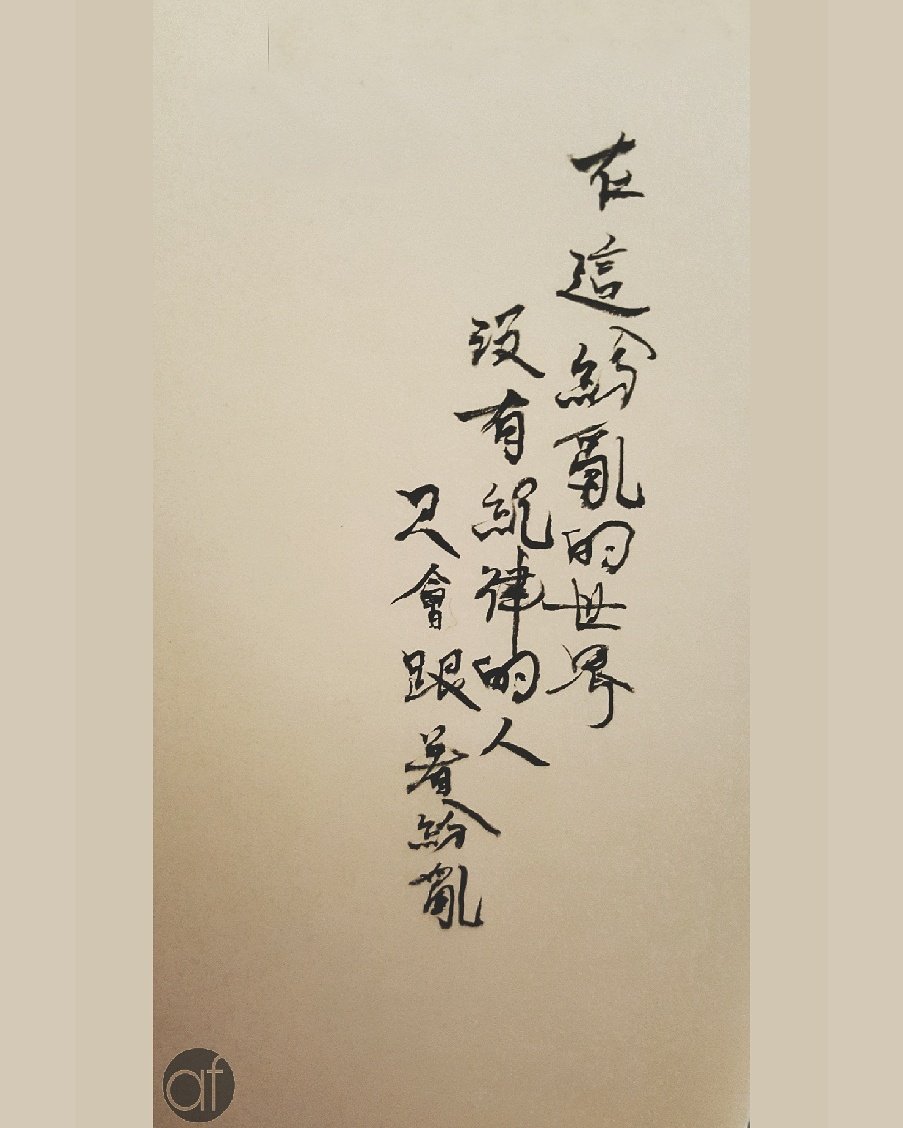 在這紛亂的世界
沒有紀律的人
只會跟著紛亂
af